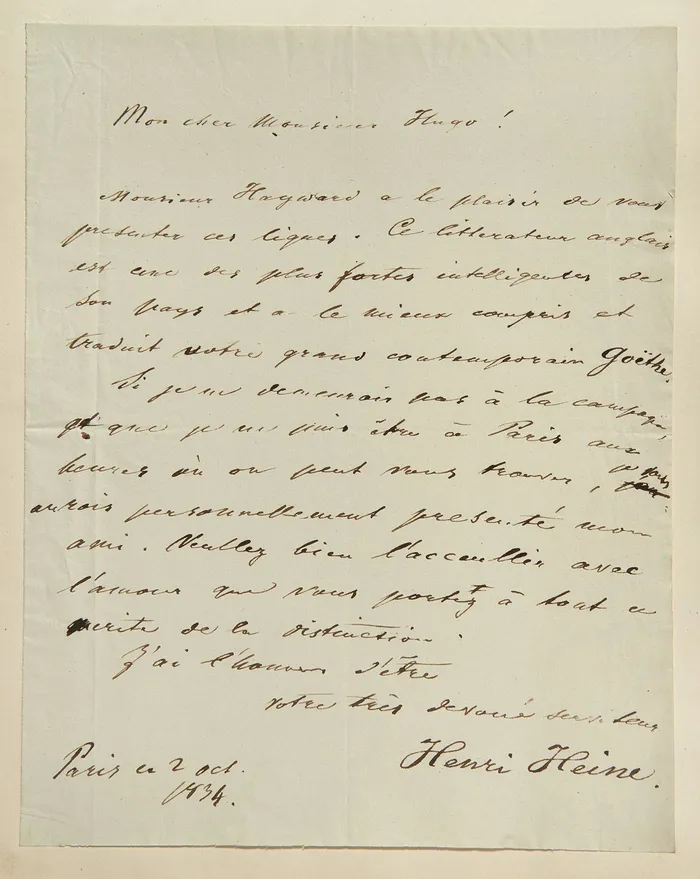 Mon cher Monsieur Hugo !
Monsieur Hayward a le plaisir de vous
presenter ces lignes. Ce litterateur anglais
est une des plus fortes intelligences de
son pays et a le mieux compris et
traduit votre grand contemporain Goëthe.
Si je ne demeurais pas à la campagne,
et que je ne puis être à Paris aux
heures où on peut vous trouver, je vous
aurois personnellement presenté mon
ami. Veullez bien l'acceullir avec
l'amour que vous portez à tout ce
merite de la distinction.
J'ai l'honneur d'être
votre très devoué serviteur
Henri Heine.
Paris ce 2 oct.
1834.